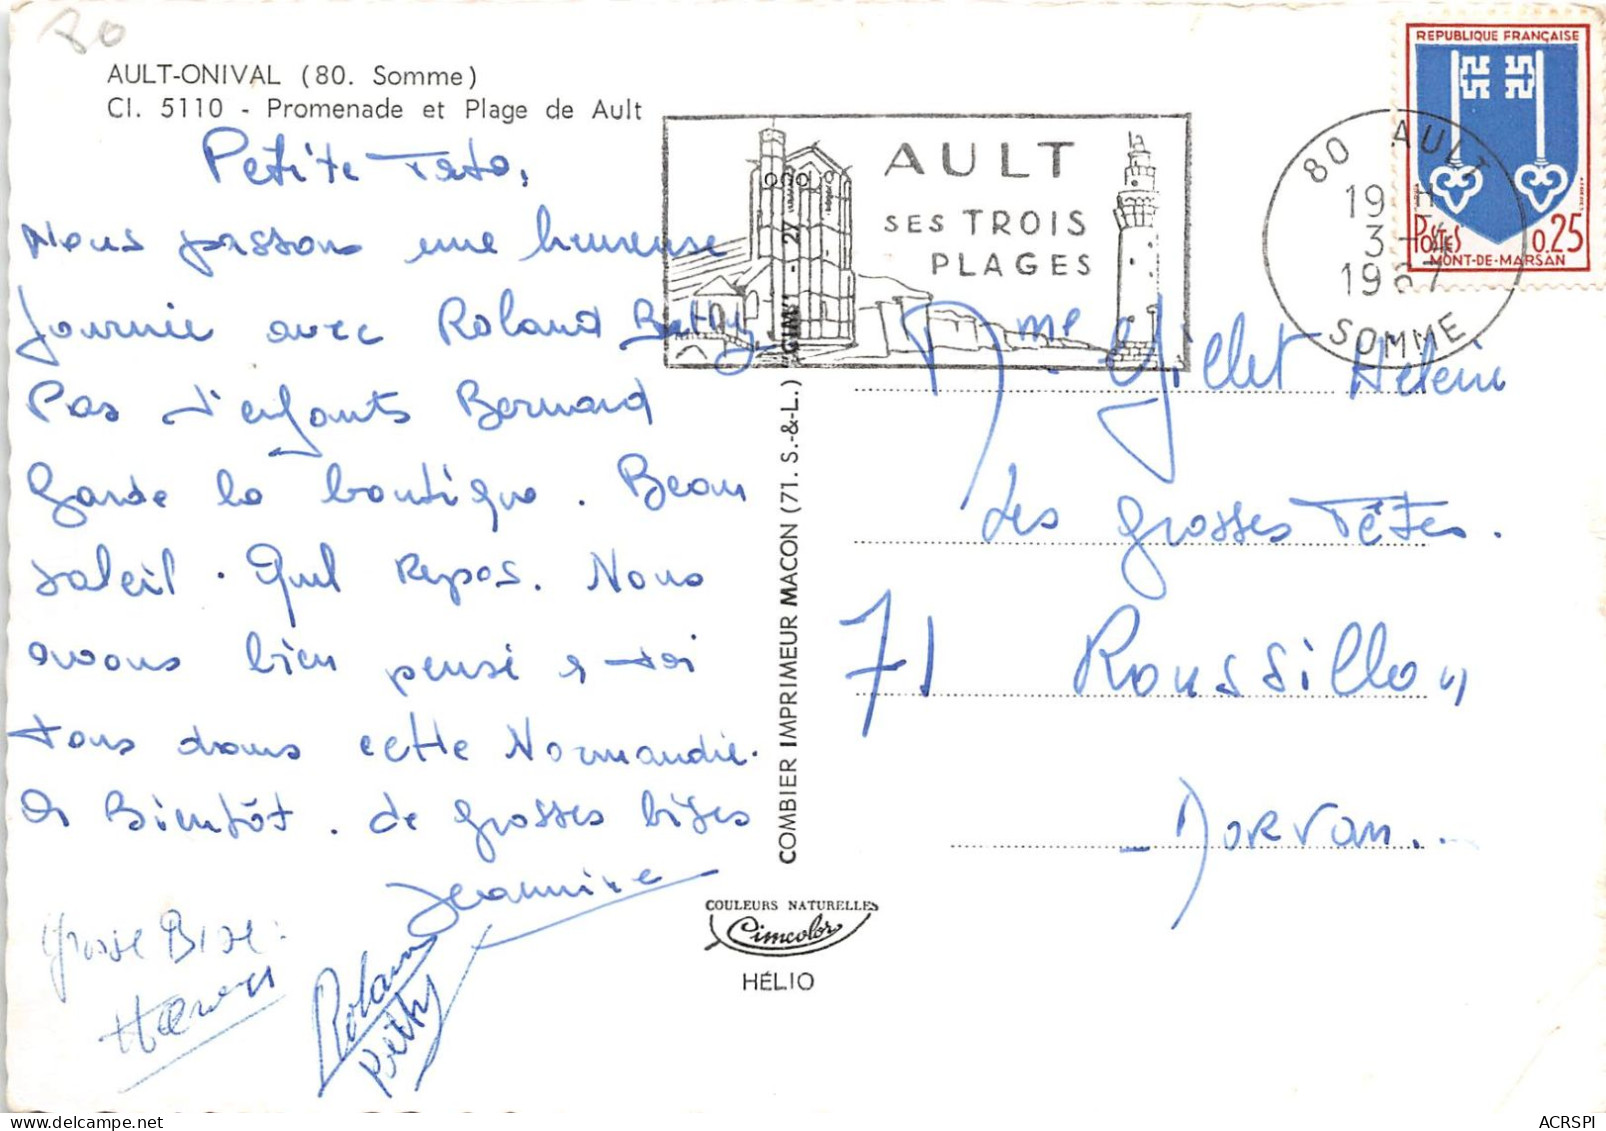 80
AULT-ONIVAL (80. Somme)
Cl. 5110 - Promenade et Plage de Ault
Petite Tata,
Nous passons une heureuse
Journée avec Roland Bethy
Pas d'enfants Bernard
Garde la boutique. Beau
soleil. Quel Repos. Nous
avons bien pensé à toi
tous dans cette Normandie.
A Bientôt. de grosses bises
Jeannine
Grosse Bise:
Roland
Bethy
COMBIER IMPRIMEUR MACON (71. S.-&-L.) CIM
COULEURS NATURELLES
Cimcolor
HÉLIO
AULT
SES TROIS
PLAGES
80 AULT
19 H
3-
1967
SOMME
REPUBLIQUE FRANÇAISE
POSTES 0.25
MONT-DE-MARSAN
Mme Gillet Hélène
Les grosses Têtes.
71 Roussillon
Dorvan...
ACRSPI